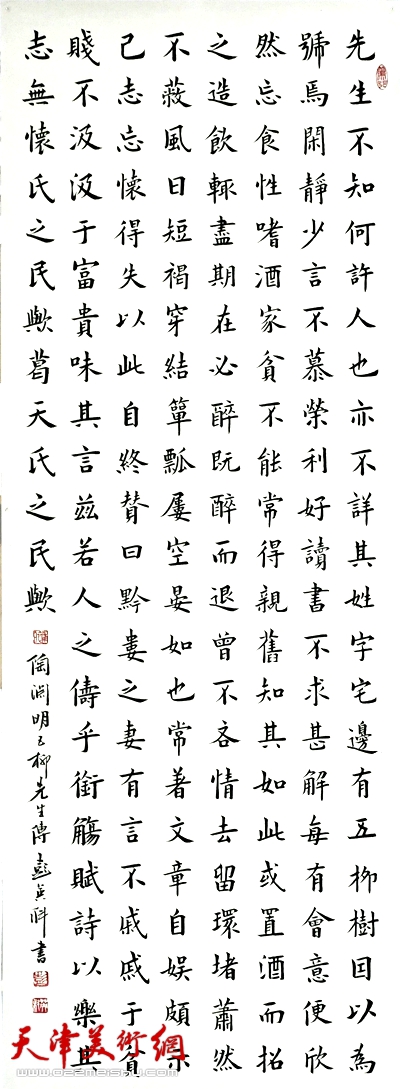 先生不知何許人也亦不詳其姓字宅邊有五柳樹因以為
號焉閑靜少言不慕榮利好讀書不求甚解每有會意便欣
然忘食性嗜酒家貧不能常得親舊知其如此或置酒而招
之造飲輒盡期在必醉既醉而退曾不吝情去留環堵蕭然
不蔽風日短褐穿結簞瓢屢空晏如也常著文章自娛頗示
己志忘懷得失以此自終贊曰黔婁之妻有言不戚戚于貧
賤不汲汲于富貴味其言茲若人之儔乎銜觴賦詩以樂其
志無懷氏之民歟葛天氏之民歟
陶淵明五柳先生傳彭英科書
天津美術網
www.022meishu.com